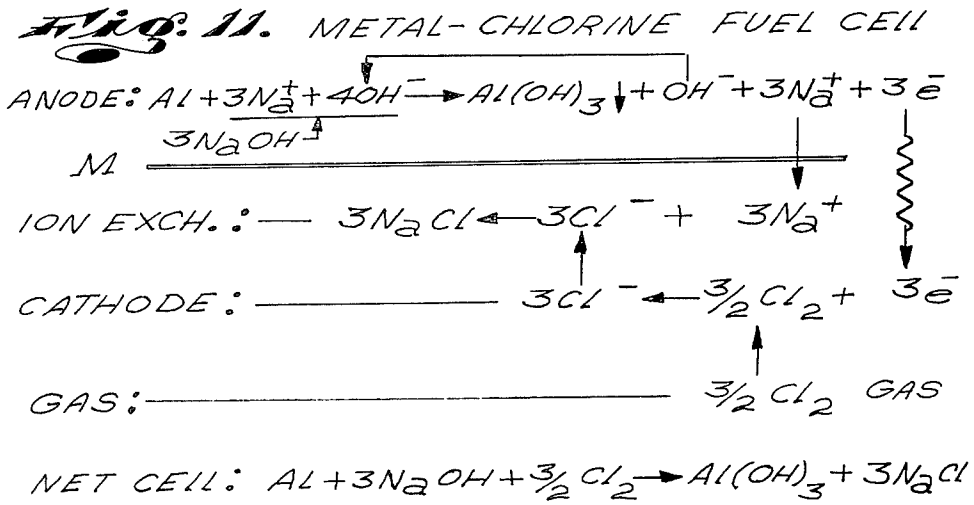 Fig. 11. METAL-CHLORINE FUEL CELL
ANODE: Al + 3Na⁺ + 4OH⁻ → Al(OH)₃ ↓ + OH⁻ + 3Na⁺ + 3e⁻
3NaOH
M
ION EXCH.: 3NaCl ← 3Cl⁻ + 3Na⁺
CATHODE: 3Cl⁻ ← 3/2 Cl₂ + 3e⁻
GAS: 3/2 Cl₂ GAS
NET CELL: Al + 3NaOH + 3/2 Cl₂ → Al(OH)₃ + 3NaCl